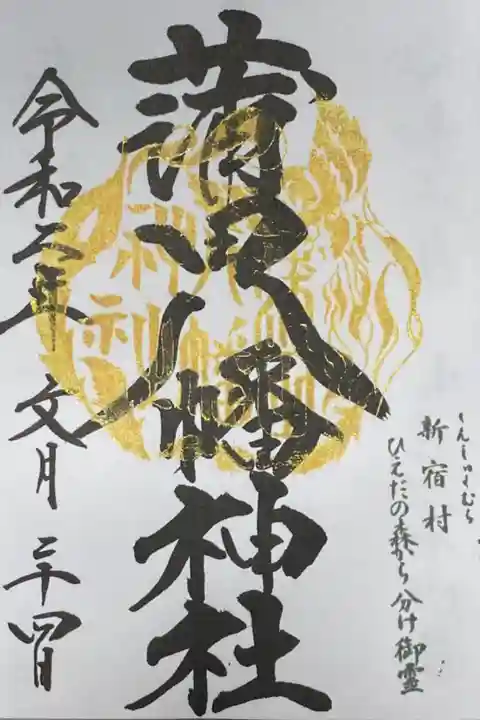 しんしゅくむら
新宿村
ひえだの森から分け御霊
蒲田八幡神社
令和二年 文月 二十四日